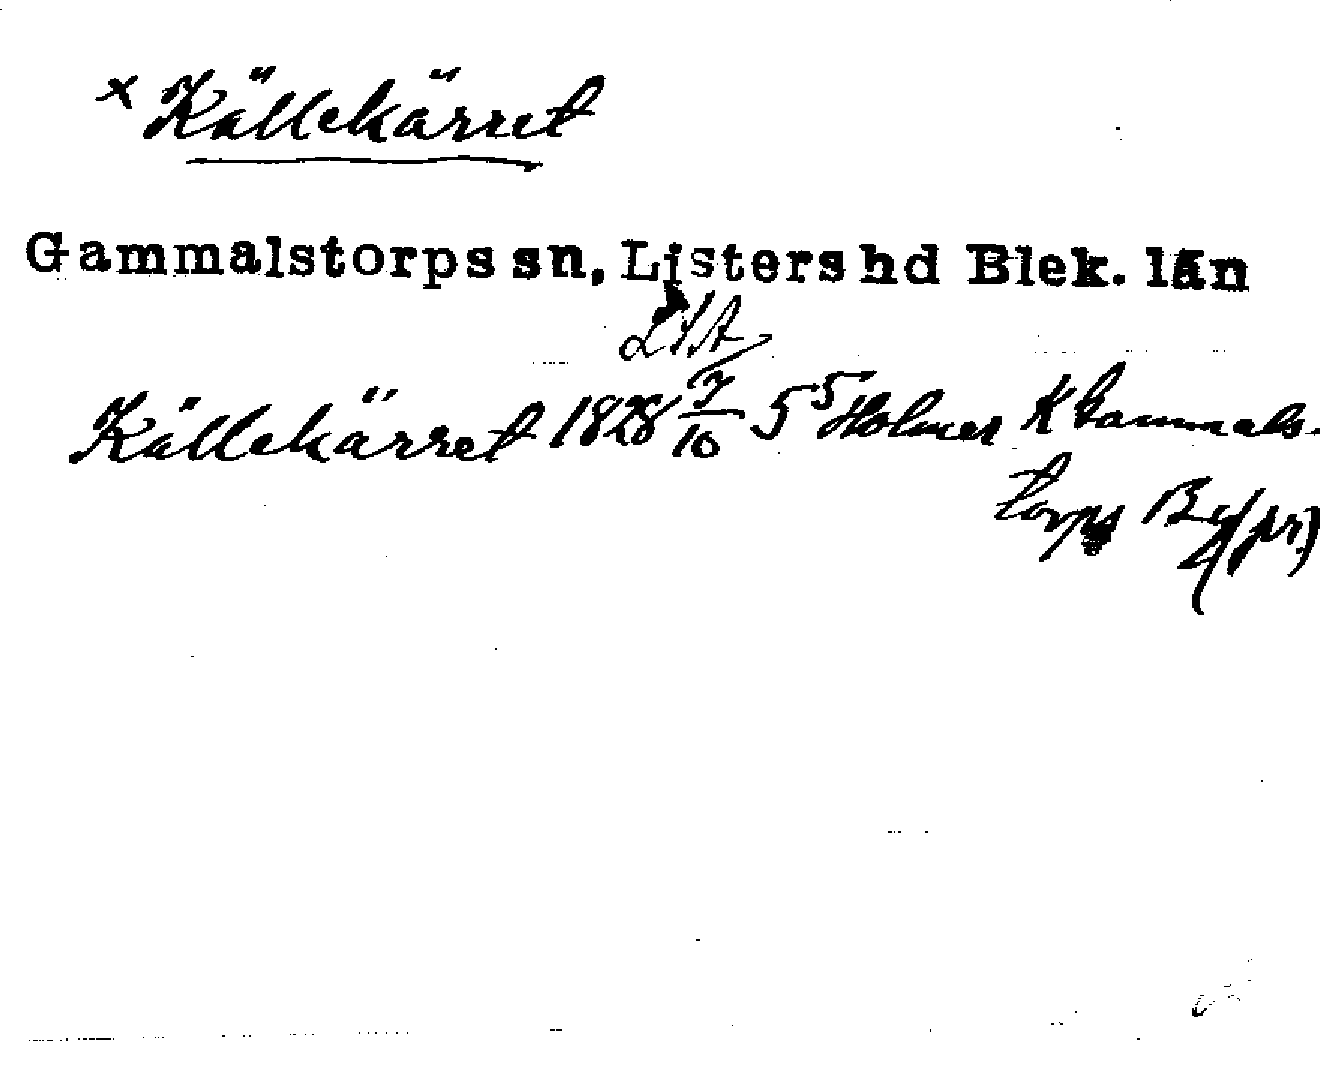 x Källekärret
Gammalstorps sn, Listers hd Blek. län
LSA
Källekärret 1828 7/10 5⁵ Holmer K Gammals-
torps By (pr)